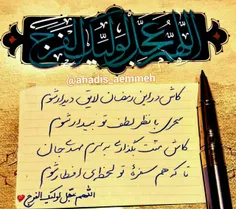 اللهم عجل لولیک الفرج
@ahadis_aemmeh
کاش در این رمضان لایق دیدار شوم
سحری با نظر لطف تو بیدار شوم
کاش منت بگذاری به سرم مهدی جان
تا که هم سفره تو لحظه ی افطار شوم
اللهم عجل لولیک الفرج